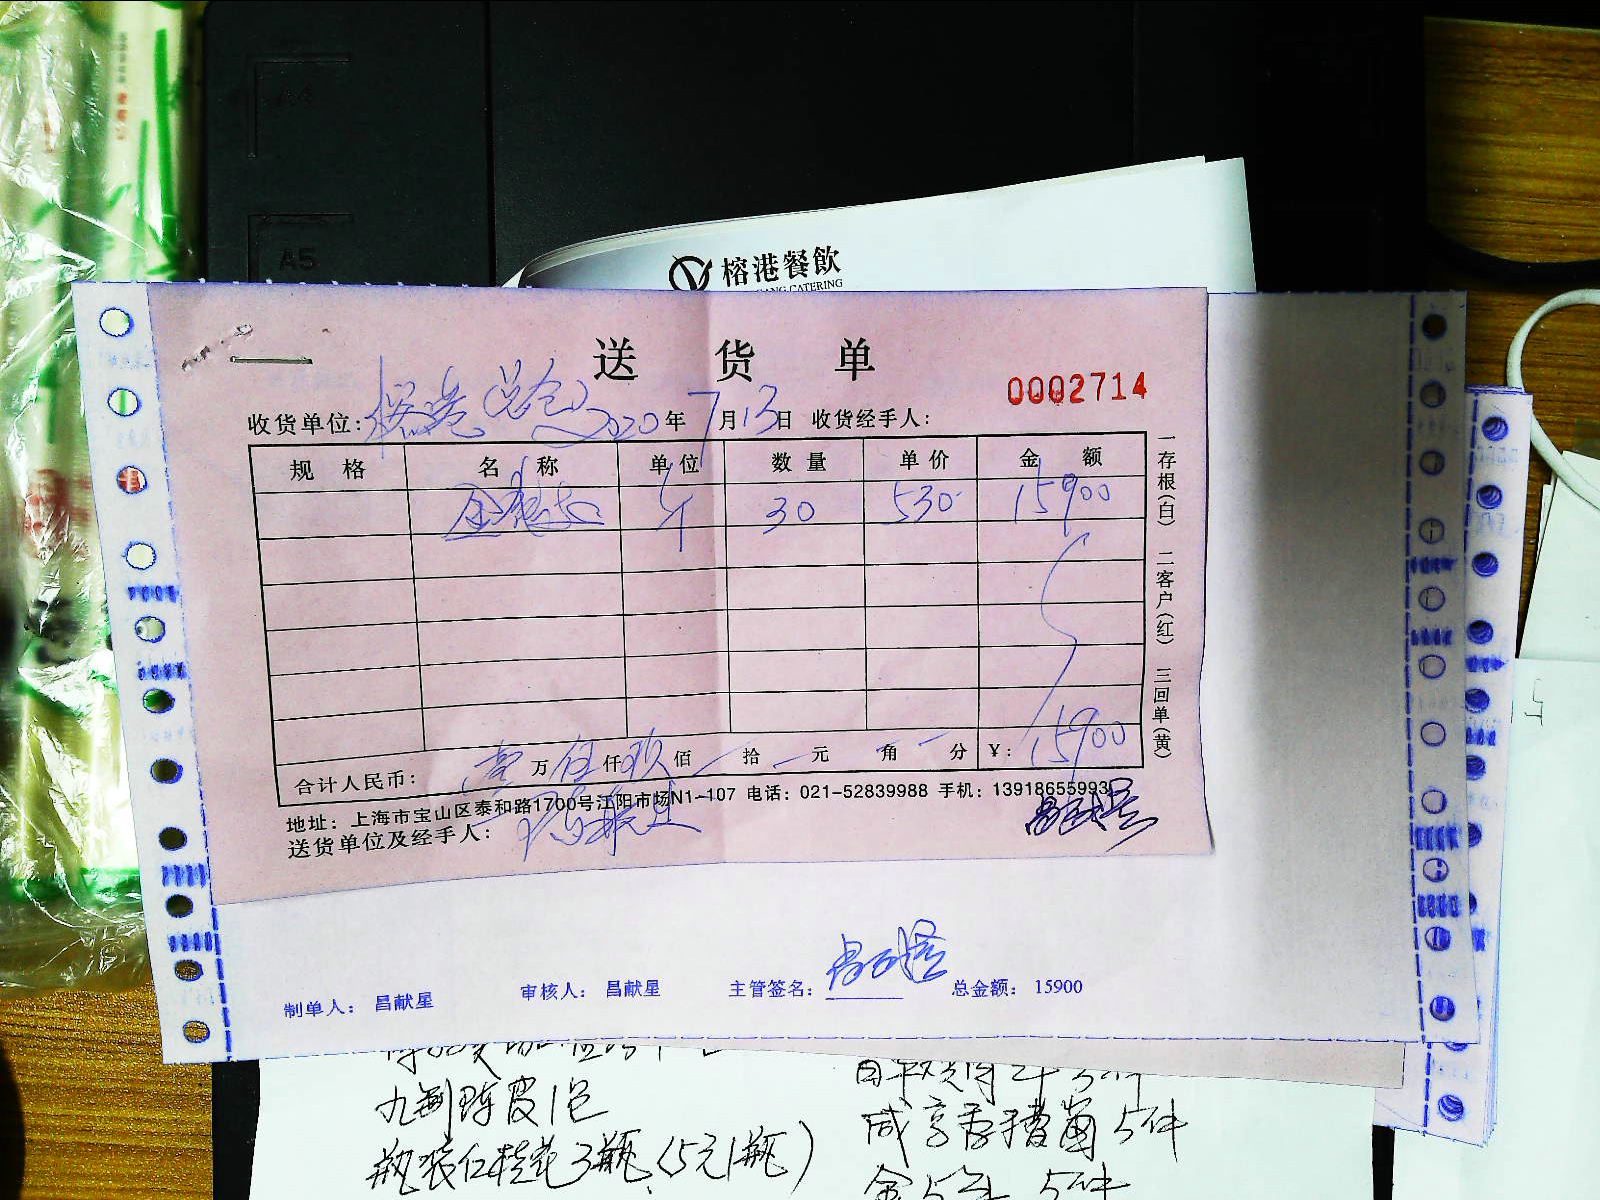 A4
A5
榕港餐飲
CATERING
送货单
0002714
收货单位:榕港(总仓) 2020年7月13日 收货经手人:
规格 名称 单位 数量 单价 金额
斤 30 530 15900
合计人民币: 壹万伍仟玖佰 拾 元 角 分 ¥: 15900
地址: 上海市宝山区泰和路1700号江阳市场N1-107 电话: 021-52839988 手机: 13918655993
送货单位及经手人:
一存根(白) 二客户(红) 三回单(黄)
制单人: 昌献星 审核人: 昌献星 主管签名: 昌献星 总金额: 15900
九制陈皮1包
瓶装红桂花3瓶(5元1瓶)
咸亨香糟卤5件
5件